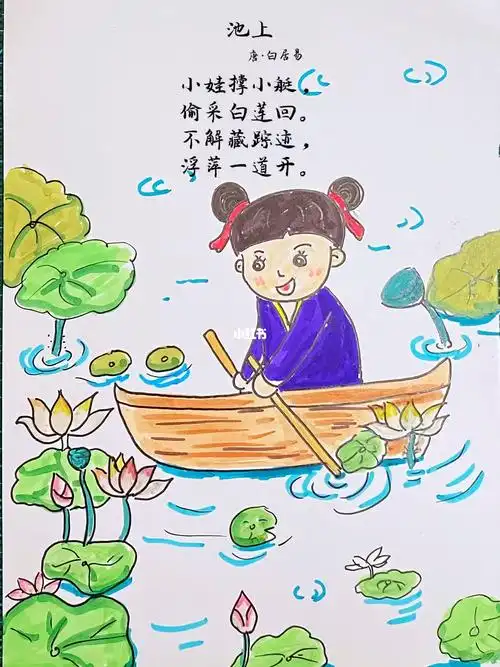 池上
唐·白居易
小娃撑小艇，
偷采白莲回。
不解藏踪迹，
浮萍一道开。
小红书